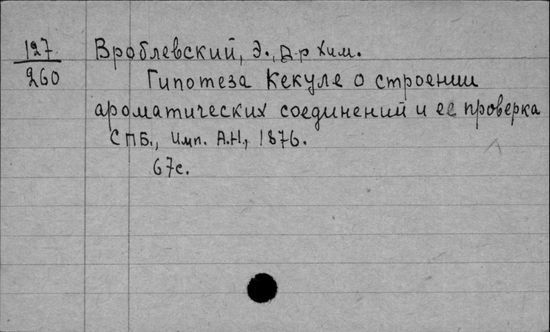 127
260
Вроблевский, Э., Д-р Хим.
Гипотеза Кекуле о строении
ароматических соединений и её проверка
СПБ., Имп. А.Н., 1876.
67с.